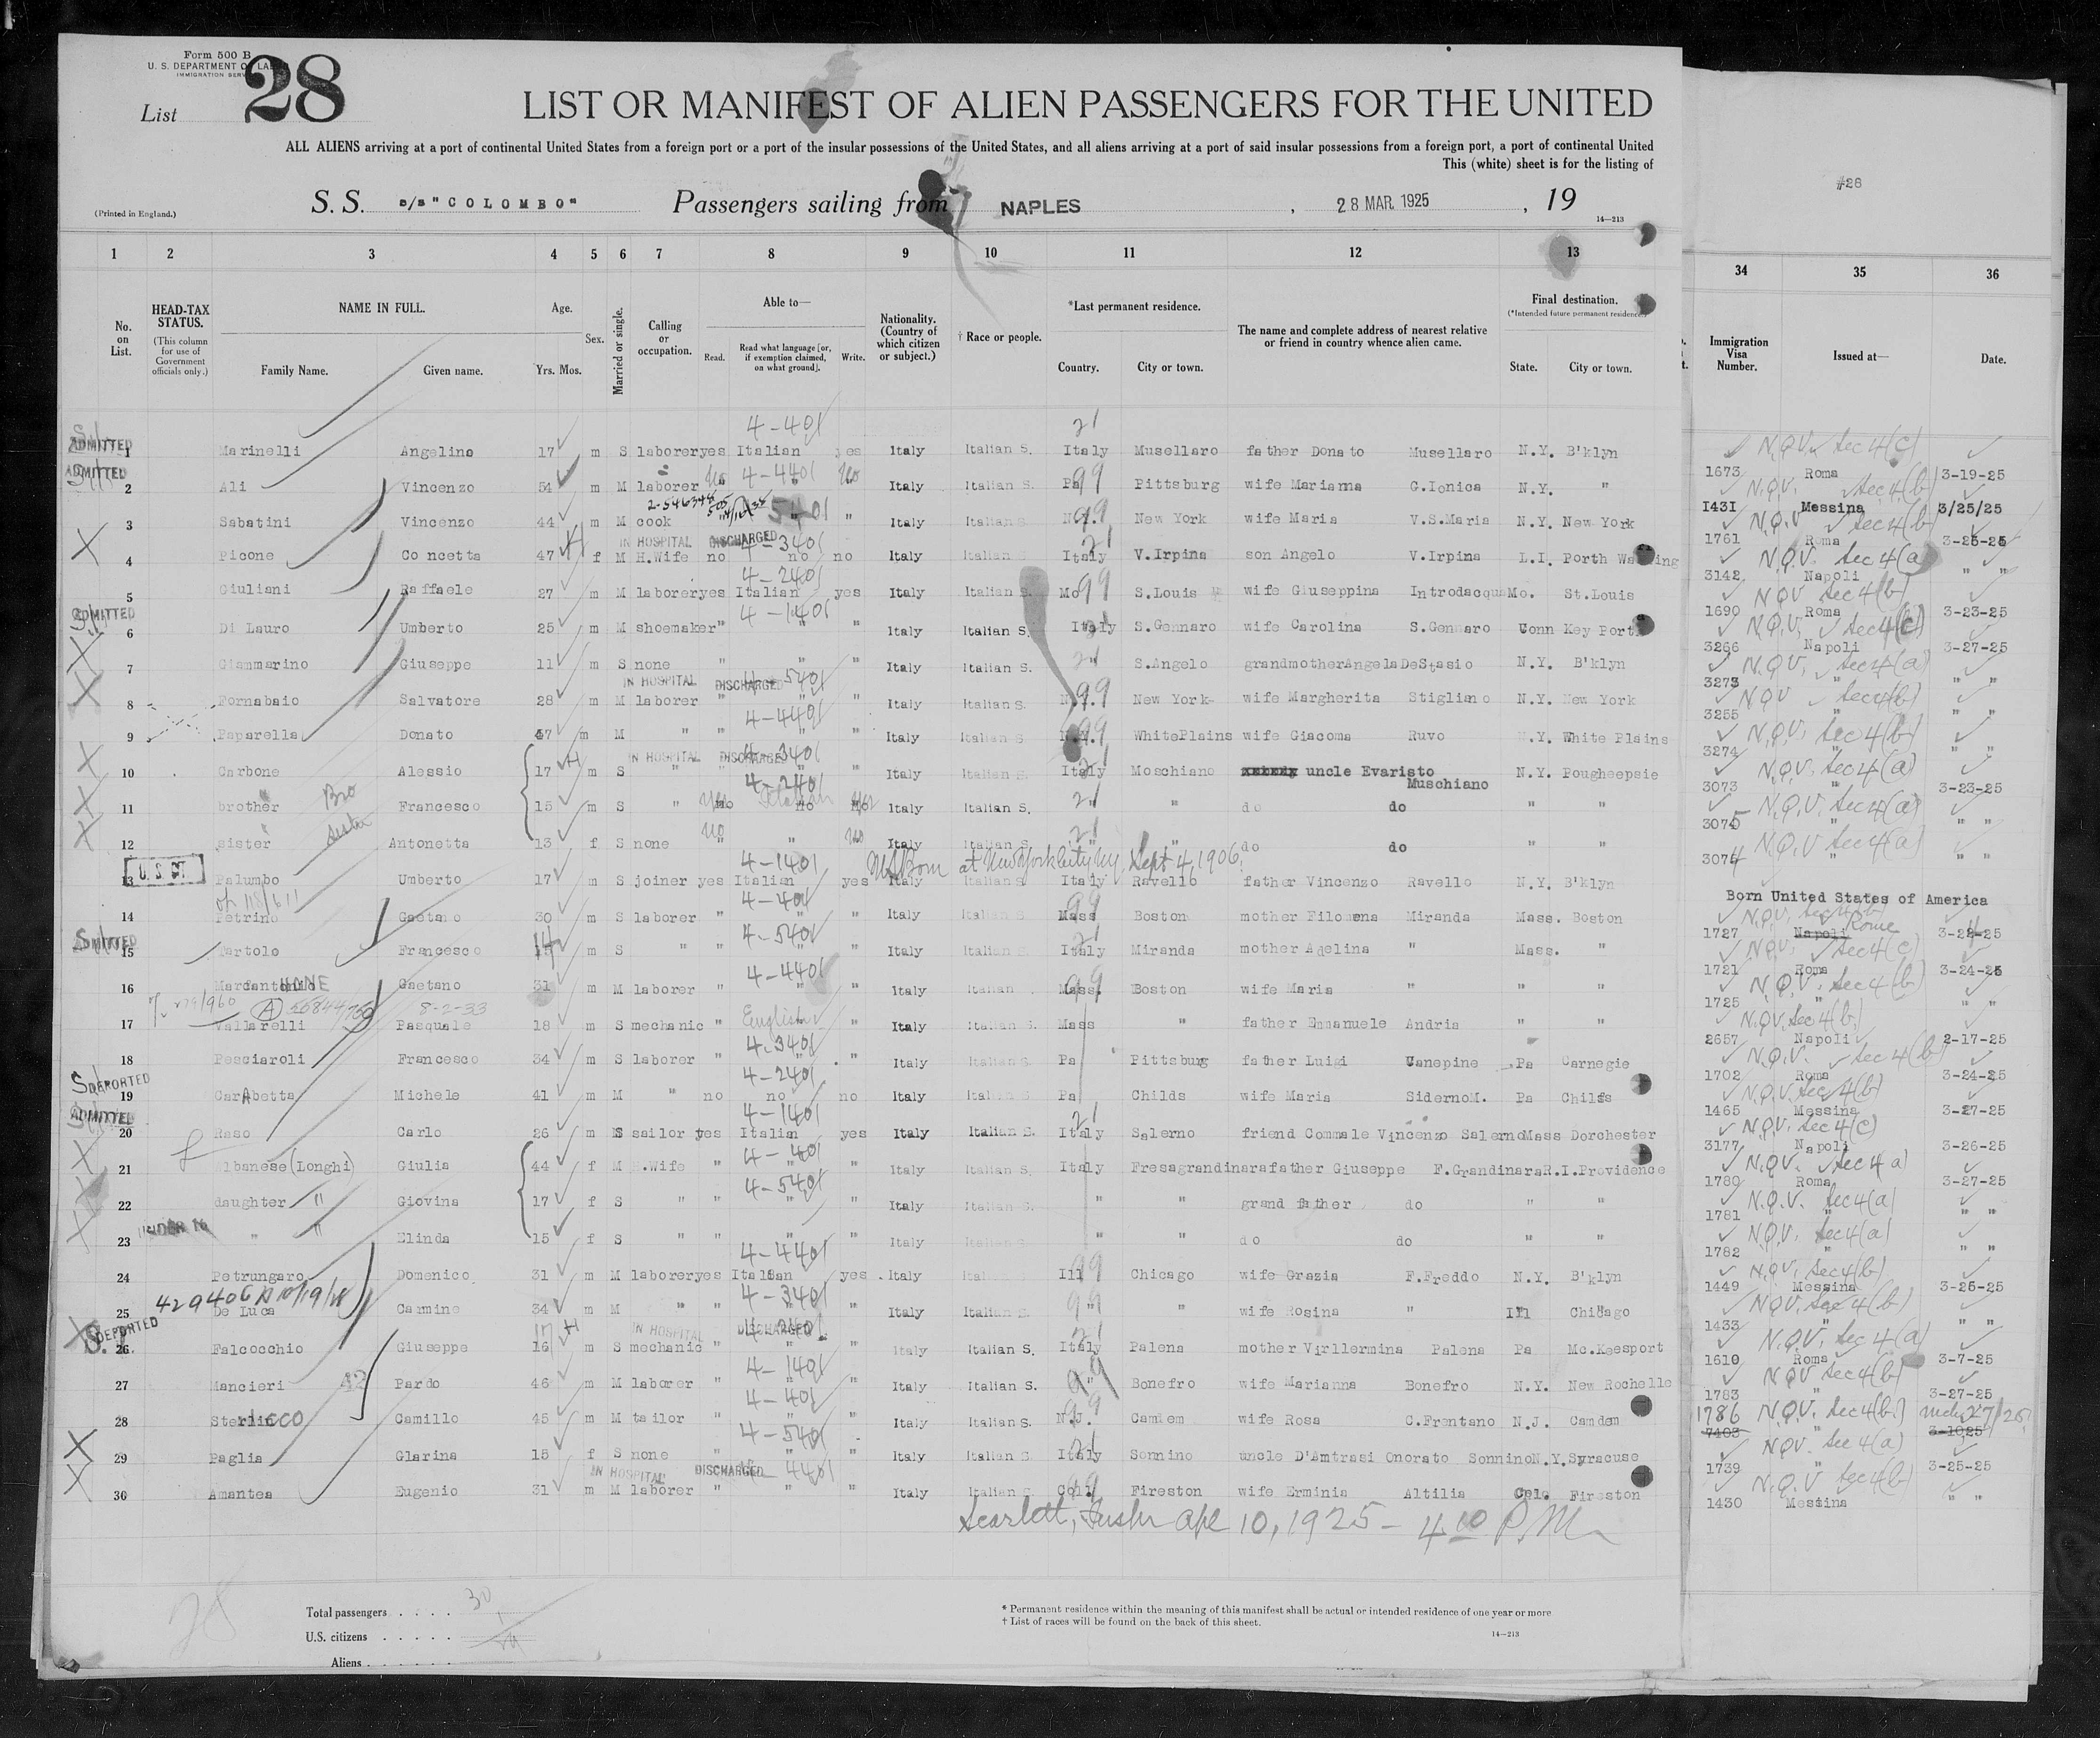 Form 500 B
U. S. DEPARTMENT OF LABOR
IMMIGRATION SERV
List 28
LIST OR MANIFEST OF ALIEN PASSENGERS FOR THE UNITED
ALL ALIENS arriving at a port of continental United States from a foreign port or a port of the insular possessions of the United States, and all aliens arriving at a port of said insular possessions from a foreign port, a port of continental United
This (white) sheet is for the listing of
#28
(Printed in England.) S. S. s/s "COLOMBO" Passengers sailing from NAPLES , 28 MAR. 1925 , 19
14—213
1 2 3 4 5 6 7 8 9 10 11 12 13 34 35 36
No. on List. HEAD-TAX STATUS. (This column for use of Government officials only.) NAME IN FULL. Family Name. Given name. Age. Yrs. Mos. Sex. Married or single. Calling or occupation. Able to— Read. Read what language [or, if exemption claimed, on what ground]. Write. Nationality. (Country of which citizen or subject.) † Race or people. *Last permanent residence. Country. City or town. The name and complete address of nearest relative or friend in country whence alien came. Final destination. (*Intended future permanent residence.) State. City or town. Immigration Visa Number. Issued at— Date.
4-401 21 N.Q.V. Sec 4(c)
ADMITTED 1 Marinelli Angelino 17 m S laborer yes Italian yes Italy Italian S. Italy Musellaro father Donato Musellaro N.Y. B'klyn 1673 Roma 3-19-25
ADMITTED 4-4401 99 N.Q.V. Sec 4(b)
2 Ali Vincenzo 54 m M laborer No No Italy Italian S. Pa Pittsburg wife Marianna G.Ionica N.Y. " 1431 Messina 3/25/25
5401 99 N.Q.V. Sec 4(b)
3 Sabatini Vincenzo 44 m M cook " " Italy Italian S New York wife Maria V.S.Maria N.Y. New York 1761 Roma 3-25-25
IN HOSPITAL DISCHARGED 4-3401 21 N.Q.V. Sec 4(a)
4 Picone Concetta 47 f M H.Wife no no no Italy Italian S Italy V.Irpina son Angelo V.Irpina L.I. Porth Wa ing 3142 Napoli " "
4-2401 99 N.Q.V. Sec 4(b)
5 Giuliani Raffaele 27 m M laborer yes Italian yes Italy Italian S Mo S.Louis wife Giuseppina Introdacqua Mo. St.Louis 1690 Roma 3-23-25
ADMITTED 4-1401 N.Q.V. Sec 4(c)
6 Di Lauro Umberto 25 m M shoemaker " " " Italy Italian S. Italy S.Gennaro wife Carolina S.Gennaro Conn Key Port 3266 Napoli 3-27-25
N.Q.V. Sec 4(a)
7 Giammarino Giuseppe 11 m S none " " " Italy Italian S. 21 S.Angelo grandmother Angela DeStasio N.Y. B'klyn 3273 " " "
IN HOSPITAL DISCHARGED 4-5401 99 N.Q.V. Sec 4(b)
8 Fornabaio Salvatore 28 m M laborer " " " Italy Italian S. New York wife Margherita Stigliano N.Y. New York 3255 "
4-4401 99 N.Q.V. Sec 4(b)
9 Paparella Donato 47 m M " " " " Italy Italian S WhitePlains wife Giacoma Ruvo N.Y. White Plains 3274 " " "
IN HOSPITAL DISCHARGED 4-3401 21 N.Q.V. Sec 4(a)
10 Carbone Alessio 17 m S " " " Italy Italian S. Italy Moschiano uncle Evaristo Muschiano N.Y. Pougheepsie 3073 3-23-25
4-2401 N.Q.V. Sec 4(a)
11 brother Bro Francesco 15 m S " Yes Italian Yes Italy Italian S. 21 " do do " " 3075 " " "
N.Q.V. Sec 4(a)
12 sister Sister Antonetta 13 f S none No " No Italy Italian S. 21 " do do " " 3074 " " "
U.S CIT 4-1401 US Born at New York City Ny, Sept 4, 1906.
13 Palumbo Umberto 17 m S joiner yes Italian yes Italy Italian S Italy Ravello father Vincenzo Ravello N.Y. B'klyn Born United States of America
4-401 99 N.Q.V. Sec 4(b)
14 Petrino Gaetano 30 m S laborer " " " Italy Italian S Mass Boston mother Filomena Miranda Mass. Boston 1727 Napoli Rome 3-24-25
ADMITTED 4-5401 21 N.Q.V. Sec 4(c)
15 Tartolo Francesco 14 m S " " " " Italy Italian S. Italy Miranda mother Adelina " Mass. " 1721 Roma 3-24-25
4-4401 N.Q.V. Sec 4(b)
16 Mardantonio Gaetano 31 m M laborer " " Italy Italian Mass. Boston wife Maria " " " 1725 " " "
8-2-33 English N.Q.V. Sec 4(b)
17 Vallarelli Pasquale 18 m S mechanic " " Italy Italian S. Mass " father Emmanuele Andria " " 2657 Napoli 2-17-25
4-3401 N.Q.V. Sec 4(b)
18 Pesciaroli Francesco 34 m S laborer " " " Italy Italian S. Pa Pittsburg father Luigi Canepine Pa Carnegie 1702 Roma 3-24-25
DEPORTED 4-2401 N.Q.V. Sec 4(b)
19 CarAbetta Michele 41 m M " no no no Italy Italian S Pa Childs wife Maria SidernoM. Pa Childs 1465 Messina 3-27-25
ADMITTED 4-1401 21 N.Q.V. Sec 4(c)
20 Raso Carlo 26 m S sailor yes Italian yes Italy Italian S. Italy Salerno friend Commale Vincenzo Salerno Mass Dorchester 3177 Napoli 3-26-25
4-401 N.Q.V. Sec 4 a)
21 Albanese (Longhi) Giulia 44 f M H.Wife " " " Italy Italian S. Italy Fresagrandinara father Giuseppe F.Grandinara R.I. Providence 1780 Roma 3-27-25
4-5401 N.Q.V. Sec 4(a)
22 daughter " Giovina 17 f S " " " " Italy Italian S. " " grand father do " " 1781 " " "
UNDER 16 N.Q.V. Sec 4(a)
23 " " Elinda 15 f S " " " Italy Italian S " " do do " " 1782 " " "
4-4401 99 N.Q.V. Sec 4(b)
24 Petrungaro Domenico 31 m M laborer yes Italian yes Italy Ital Ill Chicago wife Grazia F.Freddo N.Y. B'klyn 1449 Messina 3-26-25
429406 4-3401 99 N.Q.V. Sec 4(b)
25 De Luca Carmine 34 m M " " " " Italy Italian S " " wife Rosina " Ill Chicago 1433 " " "
DEPORTED 17 IN HOSPITAL DISCHARGED 4-2401 21 N.Q.V. Sec 4(a)
26 Falcocchio Giuseppe 16 m S mechanic " " " Italy Italian S. Italy Palena mother Virllermina Palena Pa Mc.Keesport 1610 Roma 3-7-25
4-1401 N.Q.V. Sec 4(b)
27 Mancieri 42 Pardo 46 m M laborer " " " Italy Italian S. " Bonefro wife Marianna Bonefro N.Y. New Rochelle 1783 " 3-27-25
4-401 99 1786 N.Q.V. Sec 4(b) Mch 27/25
28 Camillo 45 m M tailor " " " Italy Italian S. N.J. Camdem wife Rosa C.Frentano N.J. Camdem 7403 3-1025
4-5401 21 N.Q.V. Sec 4(a)
29 Paglia Glarina 15 f S none " " " Italy Italian S. Italy Sonnino uncle D'Amtrasi Onorato Sonnino N.Y. Syracuse 1739 3-25-25
IN HOSPITAL DISCHARGED 4401 99 N.Q.V. Sec 4(b)
30 Amantea Eugenio 31 m M laborer " " " Italy Italian S. Fireston wife Erminia Altilia Colo Fireston 1430 Messina " "
Scarlett, Apl 10, 1925 - 4 10 P.M.
28
Total passengers . . . . 30
U.S. citizens . . . . . 1
Aliens . . . . . .
* Permanent residence within the meaning of this manifest shall be actual or intended residence of one year or more
† List of races will be found on the back of this sheet.
14—213